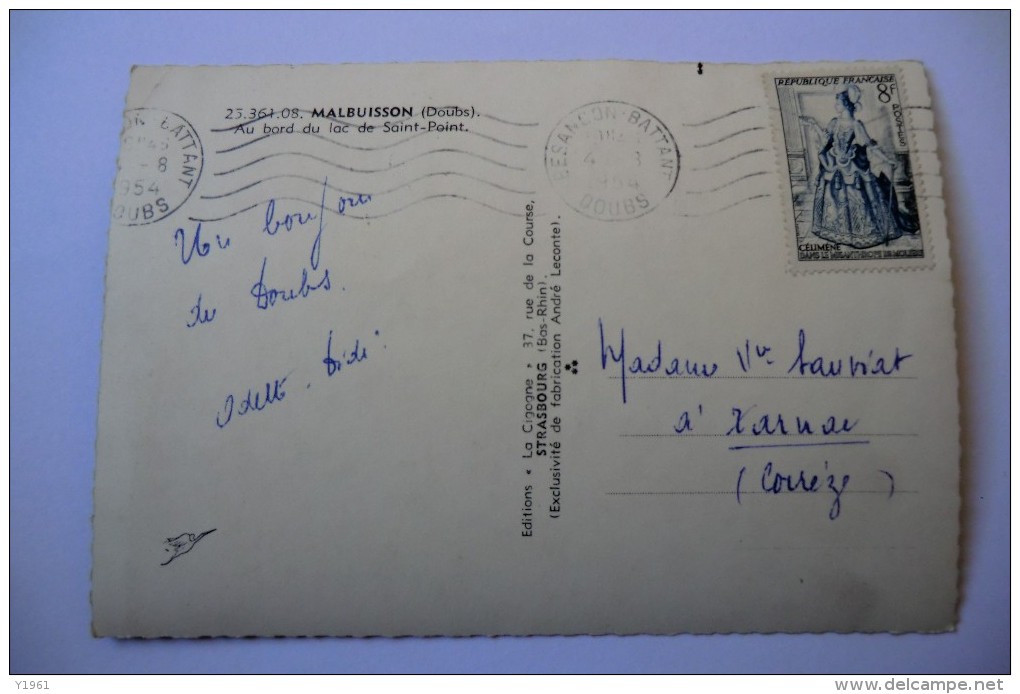 25.361.08. MALBUISSON (Doubs).
Au bord du lac de Saint-Point.
BATTANT
-8
1954
DOUBS
BESANÇON-BATTANT
4 -8
1954
DOUBS
RÉPUBLIQUE FRANÇAISE
8F
POSTES
CÉLIMÈNE
DANS LE MISANTHROPE DE MOLIÈRE
Un bonjour
du Doubs.
Odette. Didi.
Editions « La Cigogne », 37, rue de la Course,
STRASBOURG (Bas-Rhin).
(Exclusivité de fabrication André Leconte).
Madame Vve Lauviat
à Tarnac
(Corrèze)
Y1961
www.delcampe.net